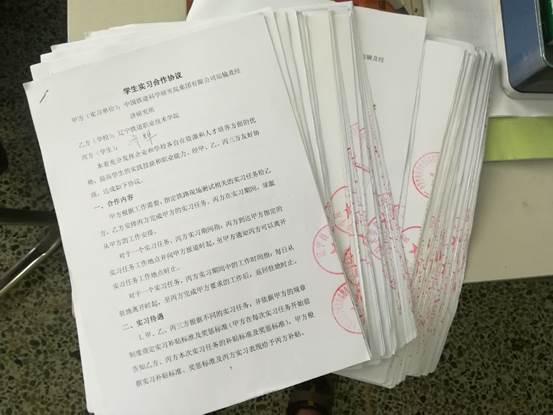 学生实习合作协议
甲方（实习单位）：中国铁道科学研究院集团有限公司运输及经
济研究所
乙方（学校）：辽宁铁道职业技术学院
丙方（学生）：
本着充分发挥企业和学校各自在资源和人才培养方面的优
势，提高学生的实践技能和职业能力，经甲、乙、丙三方友好协
商，达成如下协议。
一、合作内容
甲方根据工作需要，指定铁路现场测试相关的实习任务给乙
方，乙方安排丙方完成甲方的实习任务，丙方在实习期间，须服
从甲方的工作安排。
对于一个实习任务，丙方实习期间指：丙方到达甲方指定的
实习任务工作地点并向甲方报道时起，至甲方通知丙方可以离开
实习任务工作地点时止。
对于一个实习任务，丙方实习期间中的工作时间指：每日从
驻地离开时起，至丙方完成甲方要求的工作后，返回驻地时止。
二、实习待遇
1.甲、乙、丙三方根据不同的实习任务，并依据甲方的规章
制度商定实习补贴标准及奖惩标准（甲方在每次实习任务开始前
告知乙方、丙方本次实习任务的补贴标准及奖惩标准）。甲方根
据实习补贴标准、奖惩标准及丙方实习表现给予丙方补贴。
运输及经